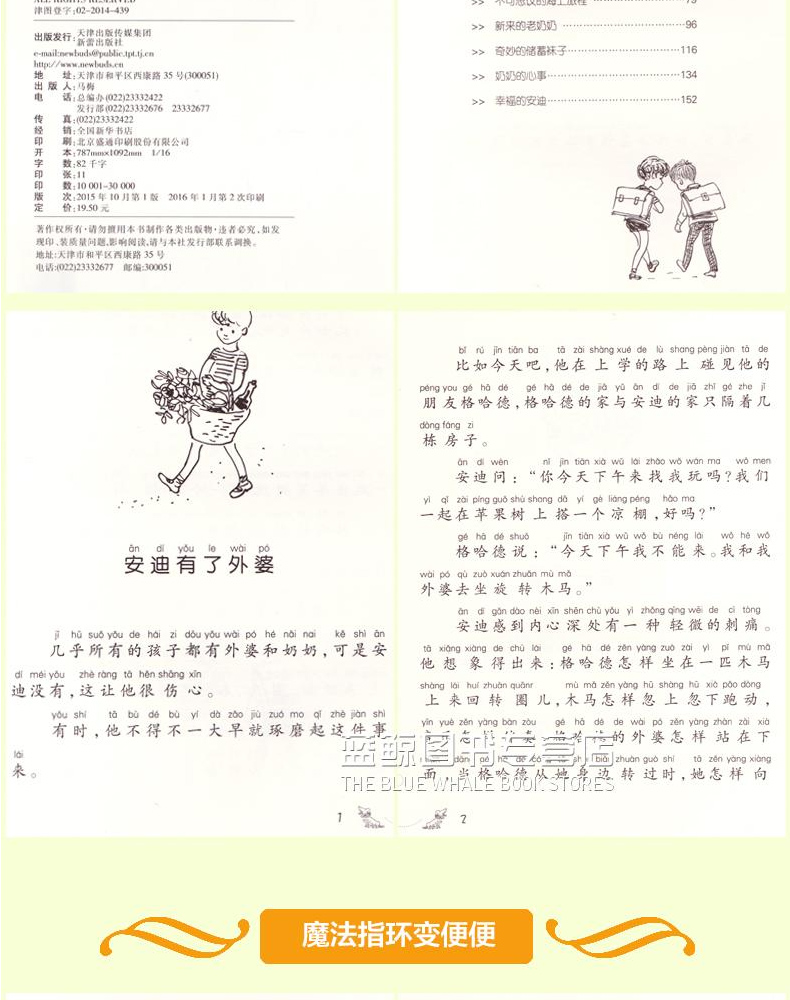 津图登字:02-2014-439
出版发行:天津出版传媒集团
新蕾出版社
e-mail:newbuds@public.tpt.tj.cn
http://www.newbuds.cn
地 址:天津市和平区西康路 35 号(300051)
出 版 人:马梅
电 话:总编办(022)23332422
发行部(022)23332676 23332677
传 真:(022)23332422
经 销:全国新华书店
印 刷:北京盛通印刷股份有限公司
开 本:787mm×1092mm 1/16
字 数:82 千字
印 张:11
印 数:10 001-30 000
版 次:2015 年 10 月第 1 版 2016 年 1 月第 2 次印刷
定 价:19.50 元
著作权所有·请勿擅用本书制作各类出版物·违者必究,如发
现印、装质量问题,影响阅读,请与本社发行部联系调换。
地址:天津市和平区西康路 35 号
电话:(022)23332677 邮编:300051
>> 新来的老奶奶 ……………………96
>> 奇妙的储蓄袜子……………………116
>> 奶奶的心事…………………………134
>> 幸福的安迪…………………………152
ān dí yǒu le wài pó
安迪有了外婆
jī hū suǒ yǒu de hái zi dōu yǒu wài pó hé nǎi nai kě shì ān
几乎所有的孩子都有外婆和奶奶,可是安
dí méi yǒu zhè ràng tā hěn shāng xīn
迪没有,这让他很伤心。
yǒu shí tā bù dé bù yí dà zǎo jiù zuó mo qǐ zhè jiàn shì
有时,他不得不一大早就琢磨起这件事
lái
来。
1
bǐ rú jīn tiān ba tā zài shàng xué de lù shang pèng jiàn tā de
比如今天吧,他在上学的路上碰见他的
péng you gé hā dé gé hā dé de jiā yǔ ān dí de jiā zhǐ gé zhe jǐ
朋友格哈德,格哈德的家与安迪的家只隔着几
dòng fáng zi
栋房子。
ān dí wèn nǐ jīn tiān xià wǔ lái zhǎo wǒ wán ma wǒ men
安迪问:“你今天下午来找我玩吗?我们
yì qǐ zài píng guǒ shù shang dā yí gè liáng péng hǎo ma
一起在苹果树上搭一个凉棚,好吗?”
gé hā dé shuō jīn tiān xià wǔ wǒ bù néng lái wǒ hé wǒ
格哈德说:“今天下午我不能来。我和我
wài pó qù zuò xuán zhuǎn mù mǎ
外婆去坐旋转木马。”
ān dí gǎn dào nèi xīn shēn chù yǒu yì zhǒng qīng wēi de cì tòng
安迪感到内心深处有一种轻微的刺痛。
tā xiǎng xiàng de chū lái gé hā dé zěn yàng zuò zài yì pǐ mù mǎ
他想象得出来:格哈德怎样坐在一匹木马
shàng lái huí zhuàn quānr mù mǎ zěn yàng hū shàng hū xià pǎo dòng
上来回转圈儿,木马怎样忽上忽下跑动,
yīn yuè zěn yàng bàn zòu gé hā dé de wài pó zěn yàng zhàn zài xià
的外婆怎样站在下
面,当格哈德从她身边转过时,她怎样向
2
蓝鲸图书专营店
THE BLUE WHALE BOOK STORES
魔法指环变便便